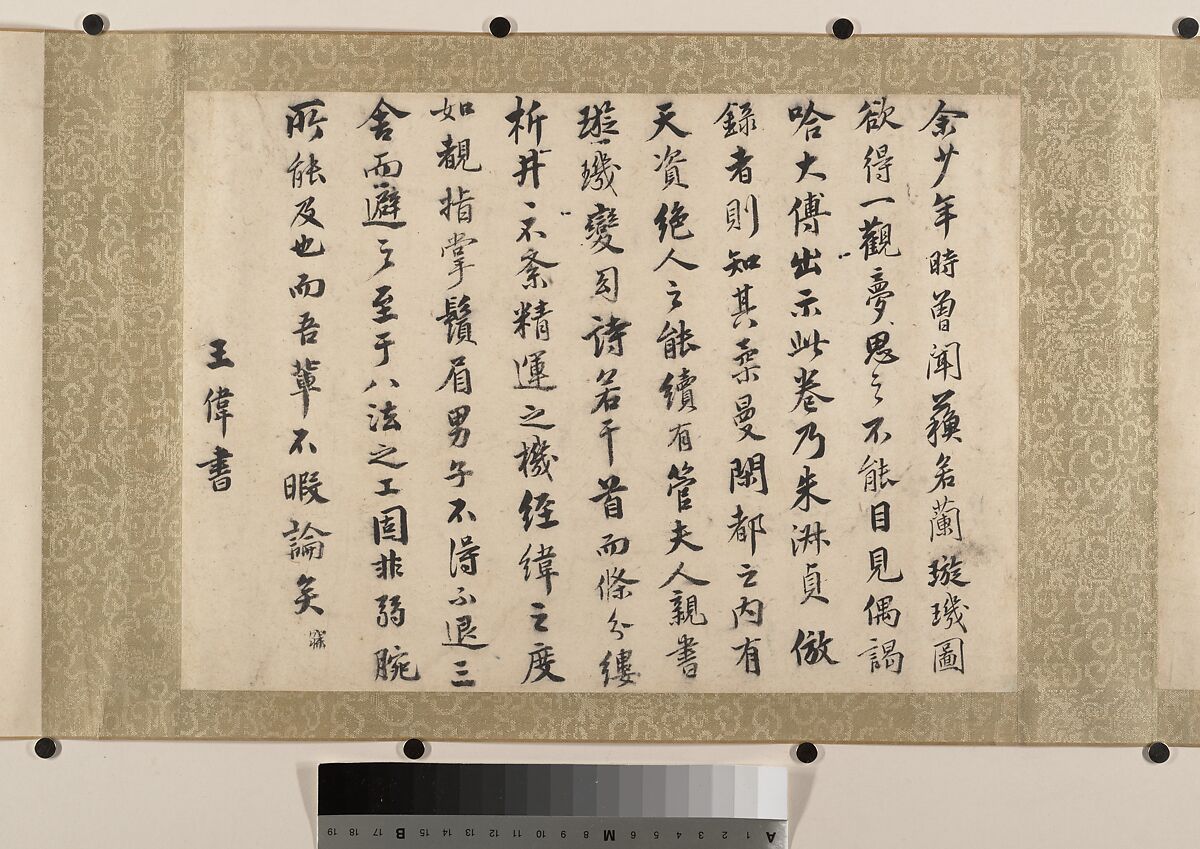 余少年時曽聞蘓若蘭璇璣圖
欲得一觀夢思之不能目見偶謁
哈大傅出示此卷乃朱淋貞倣
録者則知其柔曼閑都之内有
天資絶人之能續有管夫人親書
璇璣變图詩若干首而條分縷
析井之不紊精運之機經緯之度
如覩指掌鬚眉男子不得不退三
舍而避之至于八法之工固非弱腕
所能及也而吾輩不暇論矣
王偉書
A 1 2 3 4 5 6 M 8 9 10 11 12 13 14 15 B 17 18 19